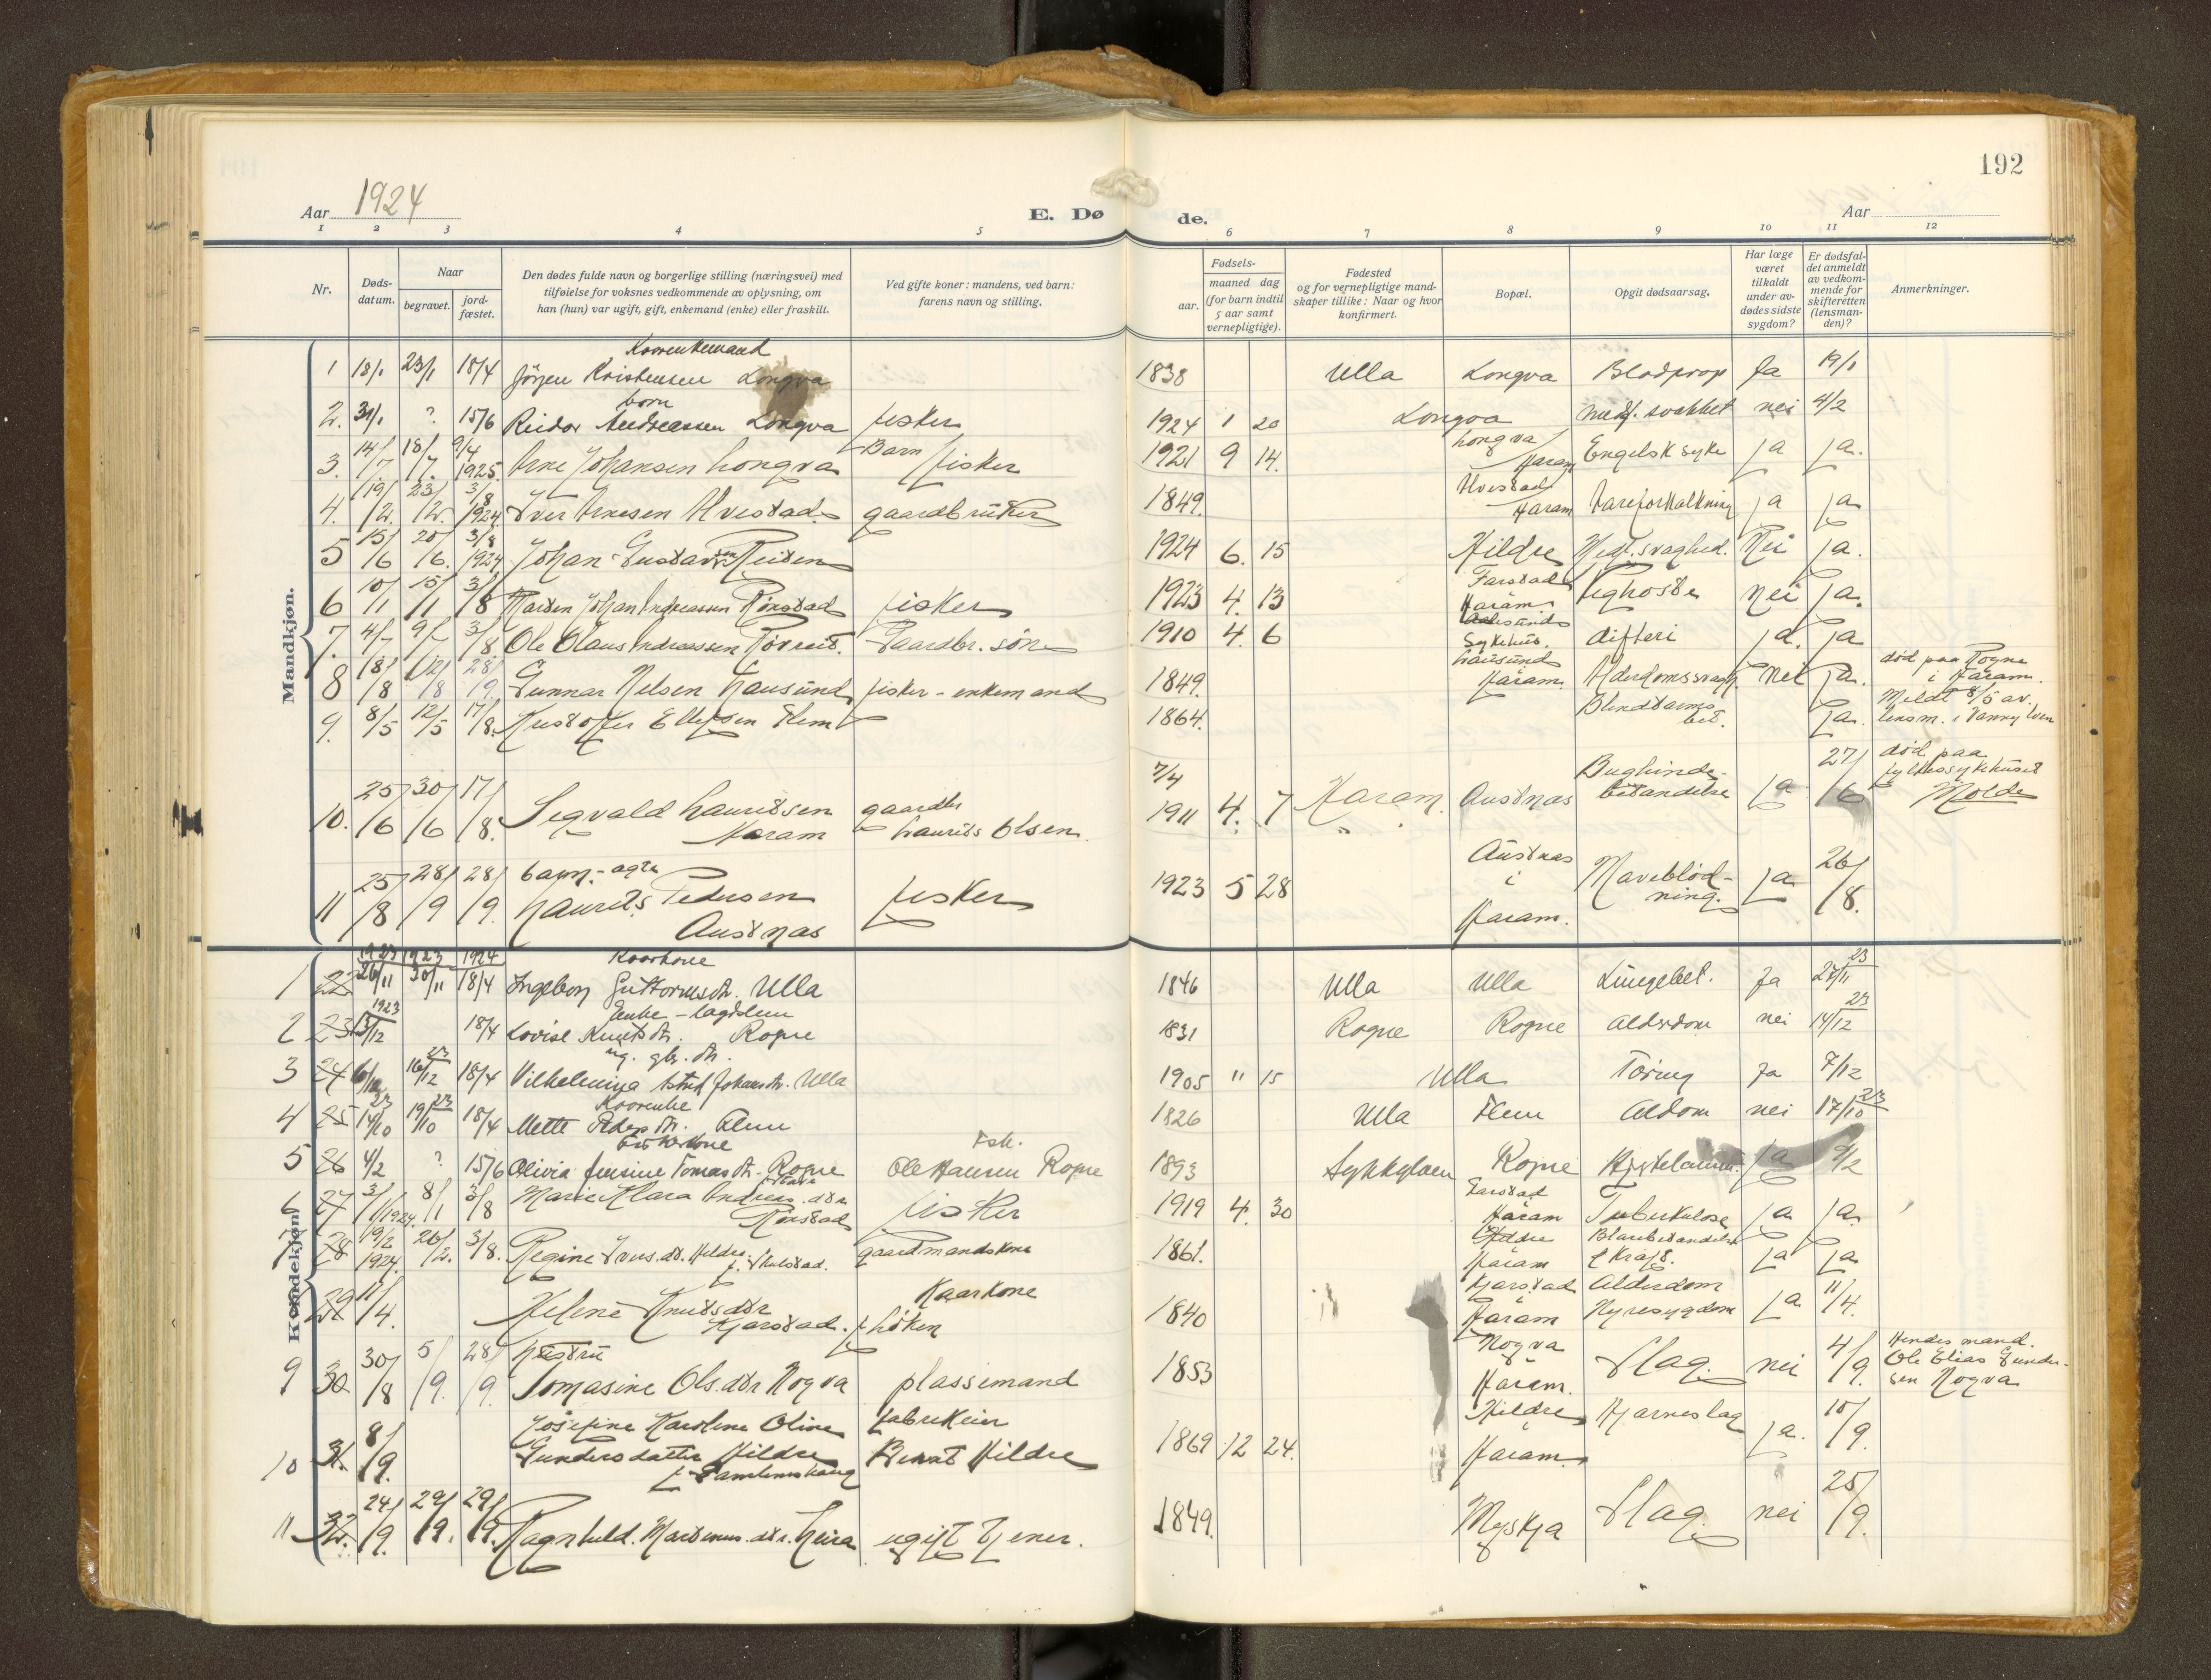 192
Aar 1924
E. Dø de.
Aar
1 2 3 4 5 6 7 8 9 10 11 12
Nr.
Døds-datum.
Naar
begravet.
jord-fæstet.
Den dødes fulde navn og borgerlige stilling (næringsvei) med
tilføielse for voksnes vedkommende av oplysning, om
han (hun) var ugift, gift, enkemand (enke) eller fraskilt.
Ved gifte koner: mandens, ved barn:
farens navn og stilling.
Fødsels-
aar.
maaned dag
(for barn indtil
5 aar samt
vernepligtige).
Fødested
og for vernepligtige mand-
skaper tillike: Naar og hvor
konfirmert.
Bopæl.
Opgit dødsaarsag.
Har læge
været
tilkaldt
under av-
dødes sidste
sygdom?
Er dødsfal-
det anmeldt
av vedkom-
mende for
skifteretten
(lensman-
den)?
Anmerkninger.
Mandkjøn.
1 18/1 23/1 18/4 Jørgen Kristensen Longva 1838 Ulla Longva Blodprop Ja 19/1
barn
2. 31/1 ? 15/6 Reidar Andreassen Longva fisker 1924 1 20 Longva medf. svakhet nei 4/2
Barn
3. 14/7 18/7 9/4 1925 Arne Johansen Longva fisker 1921 9 14. Longva Haram Engelsk syke ja ja.
4. 19/2 23/2 3/8 1924 Iver Arnesen Hvestad gaardbruker 1849. Hvestad Haram Aareforkalkning ja ja
5 15/6 20/6 3/8 1924 Johan Gustavsen Reiten 1924 6. 15 Hildre Medf. svaghed. Nei ja.
6 10/1 15/1 3/8 Marten Johan Andreassen Rønstad fisker 1923 4. 13 Farstad Haram Kighoste nei ja.
7. 4/7 9/7 3/8 Ole Olaus Andreassen Røvreit. Gaardbr. søn 1910 4. 6 Aalesunds Sykehus. difteri ja. ja
8 18/8 28/9 Gunnar Nelsen Lausund fisker - enkemand 1849. Lausund Haram. Alderdomssvagh. Nei ja. død paa Rogne i Haram.
9. 8/5 12/5 17/8. Kristoffer Ellefsen Flem 1864. Blindtarms bet. ja. Meldt 8/5 av. lensm. i Vannylven
10. 25/6 30/6 17/8. Segvald Lauritsen Haram gaardbr Laurits Olsen 7/4 1911 4. 7 Haram. Austnas Bughinde-betændelse ja 27/6 død paa fylkessykehuset Molde
barn - ægte
11 25/8 28/9 28/9. Laurits Pedersen Austnas fisker 1923 5 28 Austnas i Haram. Maveblød-ning. ja 26/8.
Kvindekjøn.
1923 1923 1924
1 22 26/11 30/11 18/4 Ingeborg Guttormsdtr. Ulla 1846 Ulla Ulla Lungebet. Ja 27/11 23
Enke - lagdlem
2 23 1923 13/12 18/4 Lovise Knutsdtr. Rogne 1831 Rogne Rogne Alderdom nei 14/12 23
ug. gbr. dtr.
3 24 6/12 16/12 23 18/4 Vilhelmina Astrid Johansdtr. Ulla 1905 11 15 Ulla Tæring Ja 7/12
4 25 14/10 23 19/10 23 18/4 Mette Pedersdtr. Flem 1826 Ulla Flem Aldom nei 17/10 23
Fiskerkone
5 26 4/2 ? 15/6 Olivia Jensine Tomasdtr. Rogne Fsk. Ole Hansen Rogne 1893 Sykkylven Rogne ja 9/2
6 27 3/1 1924. 8/1 3/8 Marie Klara Andreas.dtr Rønstad fisker 1919 4. 30 Farstad Haram Tuberkulose ja ja.
7 28 19/2 1924. 26/2. 3/8. Regine Ivers.dtr. Hildre f. Hulstad. gaardmandskone 1861. Hildre Haram Blærebetændelse & kræft. ja ja
29 11/4. Helene Knutsdtr Kjerstad. f. Løken Kaarkone 1840 Kjerstad Haram Alderdom Nyresygdom ja 11/4.
hustru
9 30 30/8 5/9. 28/9. Tomasine Ols.dtr Nogva plassemand 1853 Nogva Haram. Slag. nei 4/9. Hendes mand. Ole Elias Gunder-sen Nogva
10 31. 8/9. Josefine Karoline Oline Gundersdatter Hildre f. Gamlemshaug fabrikeier Bernt Hildre 1869 12 24. Hildre Haram. Hjerneslag ja. 10/9.
11 32. 24/9. 29/9. 29/9. Ragnhild. Martinus.dtr. Leira ugift tjener. 1849. Myskja Slag. nei 25/9.